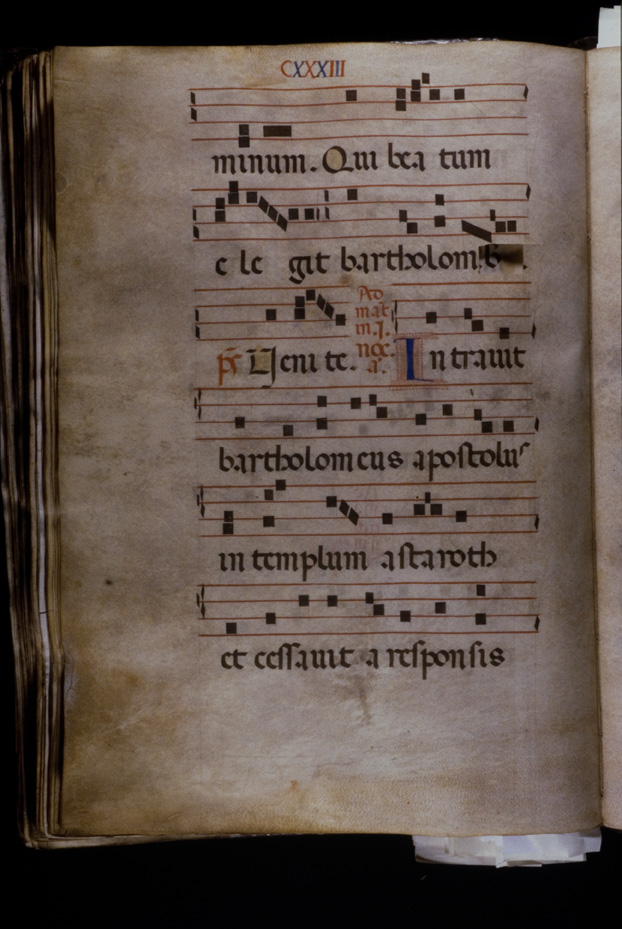 CXXXIII
minum. Qui bea tum
e le git bartholom
Ad
mat
in j.
noc.
a.
ps Ueni te. In trauit
bartholomeus apostolus
in templum astaroth
et cessauit a responsis